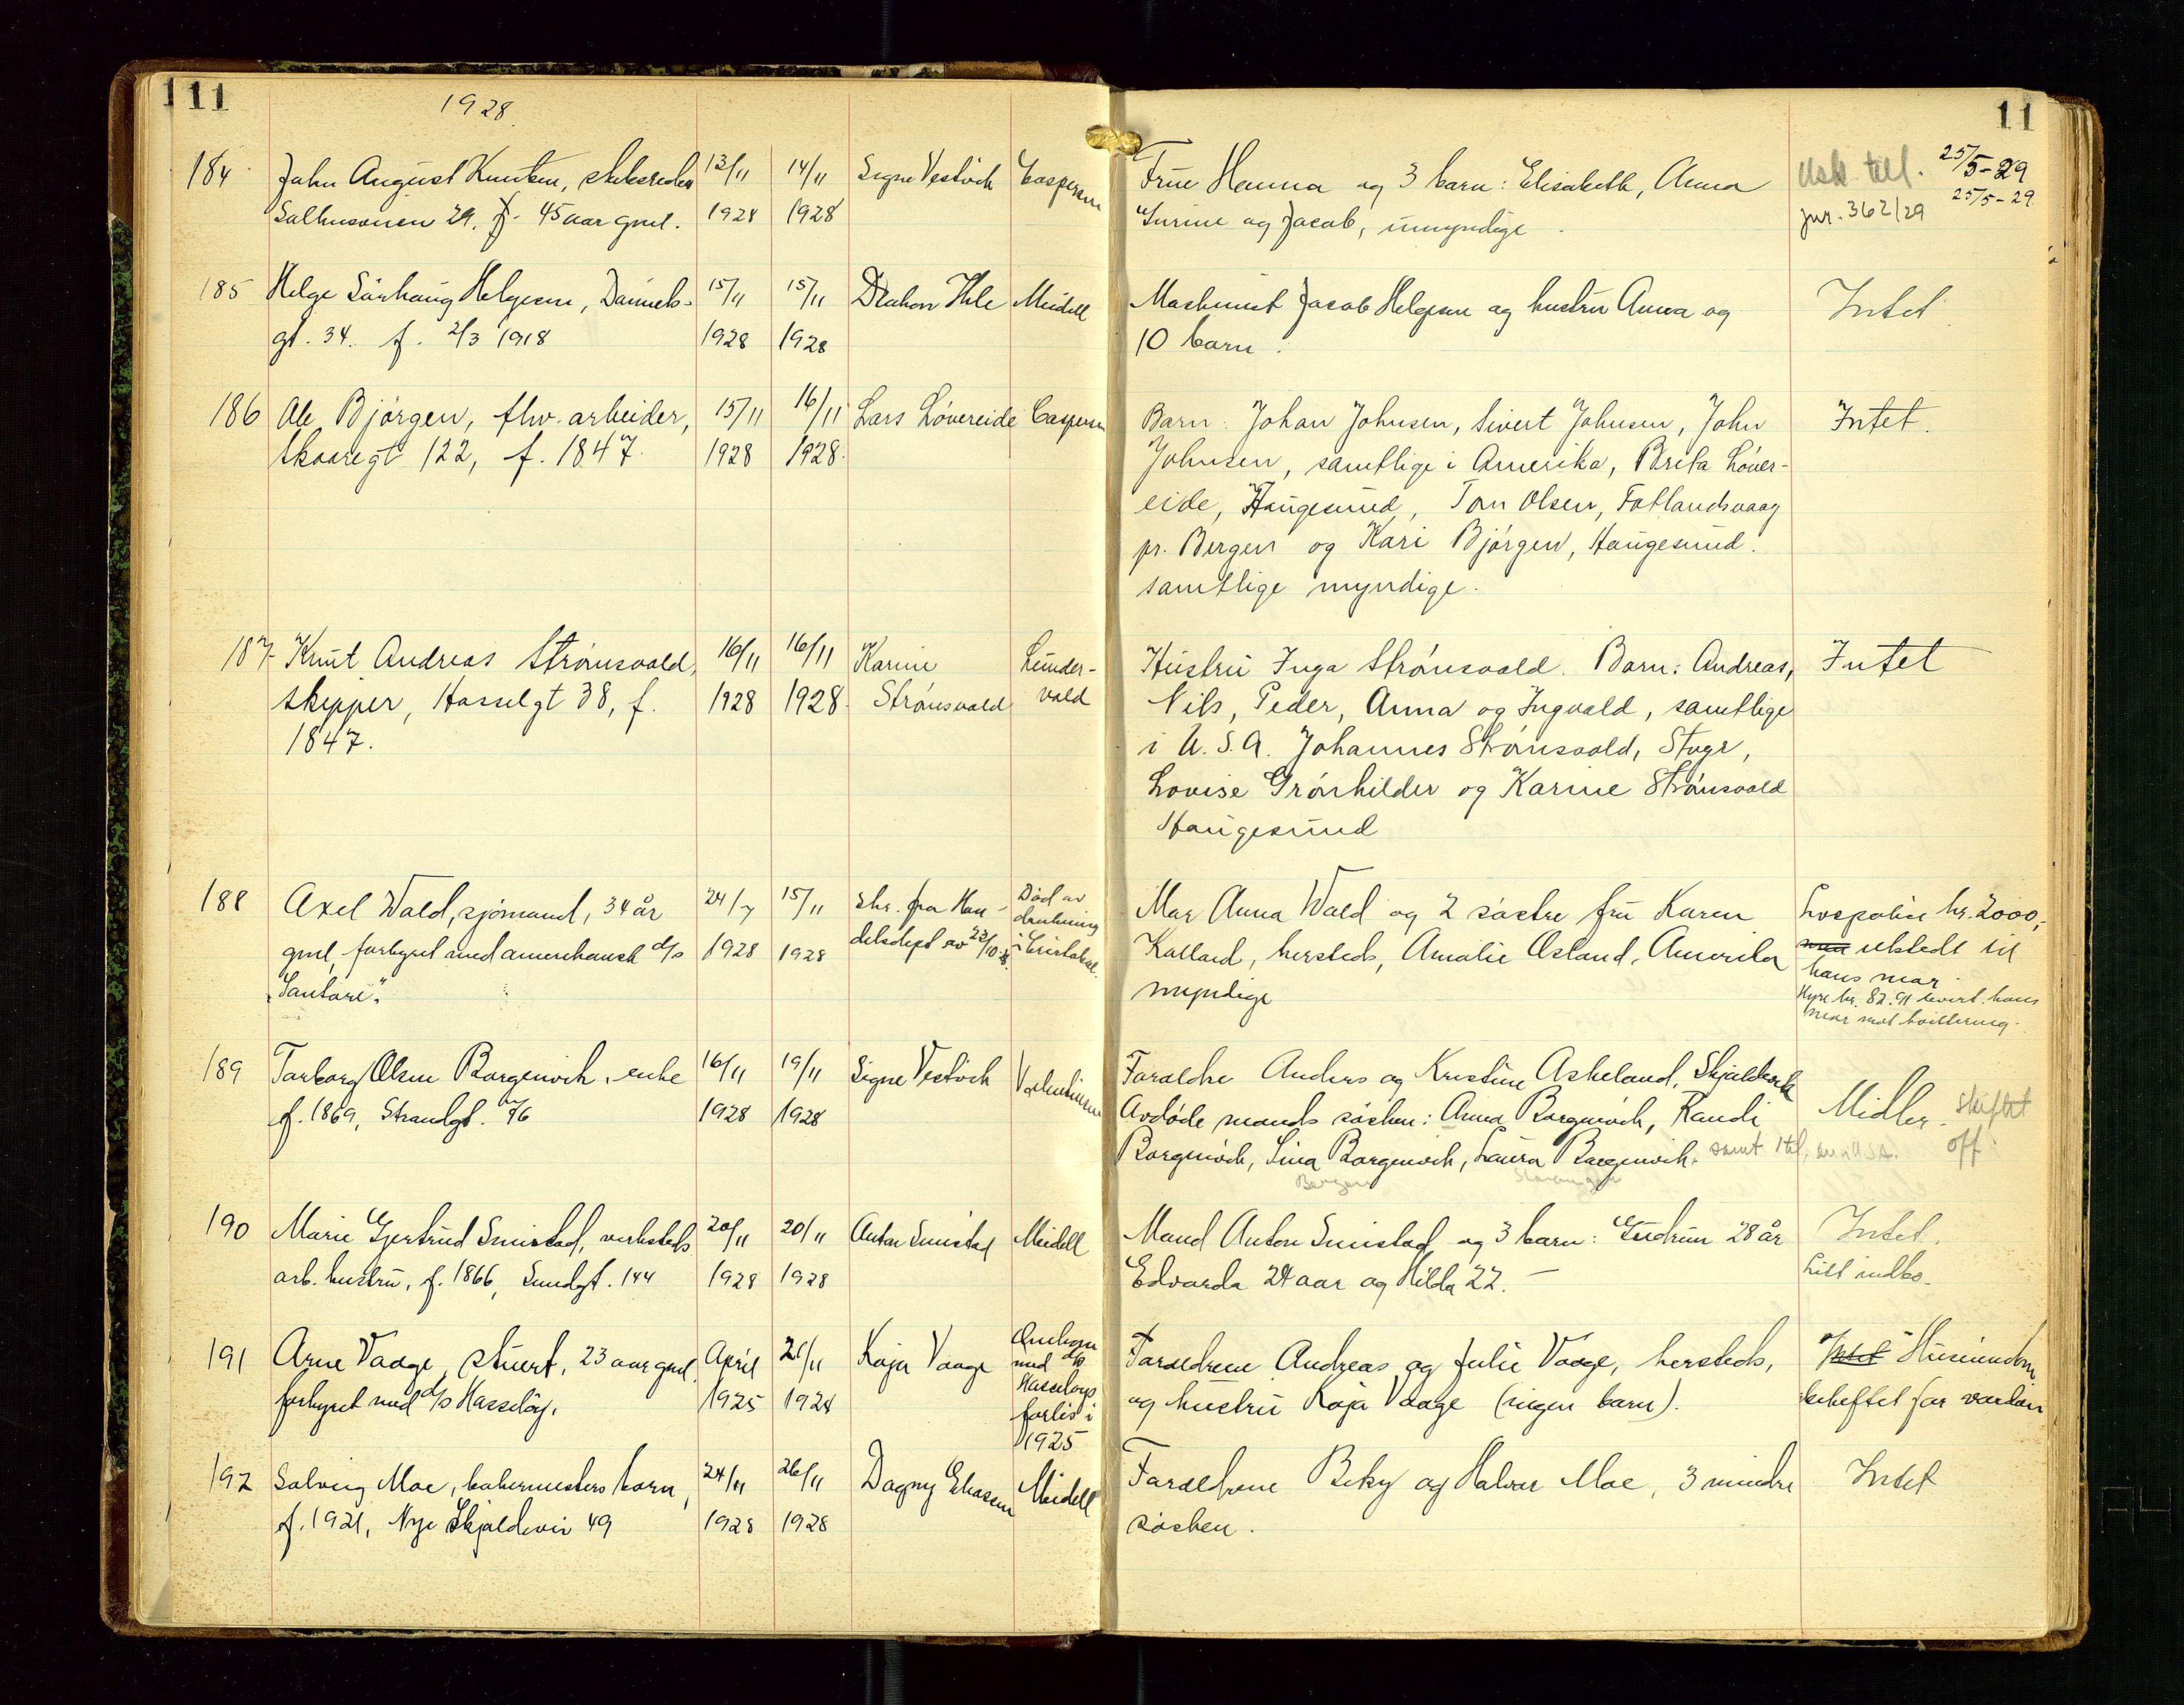 111
1928.
11
184 John August Knutsen, skibsreder 13/11 14/11 Signe Vestvik Caspersen Frue Hanna og 3 barn: Elisabeth, Anna 25/5-29
Salhusveien 29, f. 45 aar gml. 1928 1928 og Jacob, umyndige. jnr. 362/29 25/5-29
185 Helge Sørhaug Helgesen, Danmels- 15/11 15/11 Ihle Meidell Maskinist Jacob Helgesen og hustru Anna og Intet
gt. 34. f. 2/3 1918 1928 1928 10 barn.
186 Ole Bjørgen, fhv. arbeider, 15/11 16/11 Lars Løvereide Caspersen Barn: Johan Johnsen, Sivert Johnsen, John Intet.
Skaaregt 122, f. 1847 1928 1928. Johnsen, samtlige i Amerika, Brita Løver-
eide, Haugesund, Tom Olsen, Fotlandsvaag
pr. Bergen og Kari Bjørgen, Haugesund.
samtlige myndige.
187 Knut Andreas Strønsvold, 16/11 16/11 Karine Lunder- Hustru Inga Strønsvold. Barn: Andreas, Intet
skipper, Hasselgt 38, f. 1928 1928. Strønsvold vold Nils, Peder, Anna og Ingvald, samtlige
1847. i U.S.A. Johannes Strønsvold, Stugr,
Lovise Grønhilder og Karine Strønsvold
Haugesund
188 Axel Wald, sjømand, 34 år 24/7 15/11 skr. fra Han- Død av Mor Anna Wald og 2 søstre fru Karen Livspolice kr. 2000,-
gml, forhyret med amerikansk d/s 1928 1928 delsdept av 23/10 28. drukning i Cristobal. Kalland, hersteds, Amalie Østand, Amerika utstedt til
"Santore". myndige hans mor
Hyre kr. 82.91 levert hans
mor mot kvittering.
189 Torborg Olsen Borgenvik, enke 16/11 19/11 Signe Vestvik Valentinsen Forældre Anders og Kristine Askeland, Skjoldevik Midler. skiftet
f. 1869, Strandgt. 76 1928 1928 Avdøde mands søsken: Anna Borgenvik, Randi off.
Borgenvik, Lina Borgenvik, Laura Borgenvik. samt 1
Bergen Stavanger
190 Marie Gjertrud Smistad, verksteds 20/11 20/11 Anton Smistad Meidell Mand Anton Smistad og 3 barn: Gudrun 28 år Intet.
arb. hustru, f. 1866, Sundgt. 144 1928 1928 Edvarda 24 aar og Hilda 22. — Litt indbo.
191 Arne Vaage, stuert, 23 aar gml. April 21/11 Kaja Vaage Omkom med d/s Forældrene Andreas og Julie Vaage, hersteds, Intet Huseiendom
forhyret med d/s Hasseløy. 1925 1928 Hasseløys forlis i 1925 og hustru Kaja Vaage (ingen barn). beheftet for værdien
192 Solveig Moe, bakermesters barn, 24/11 26/11 Dagny Eliassen Meidell Forældrene Beky og Halvor Moe, 3 mindre Intet
f. 1921, Nye Skjoldavei 49 1928 1928 søsken.